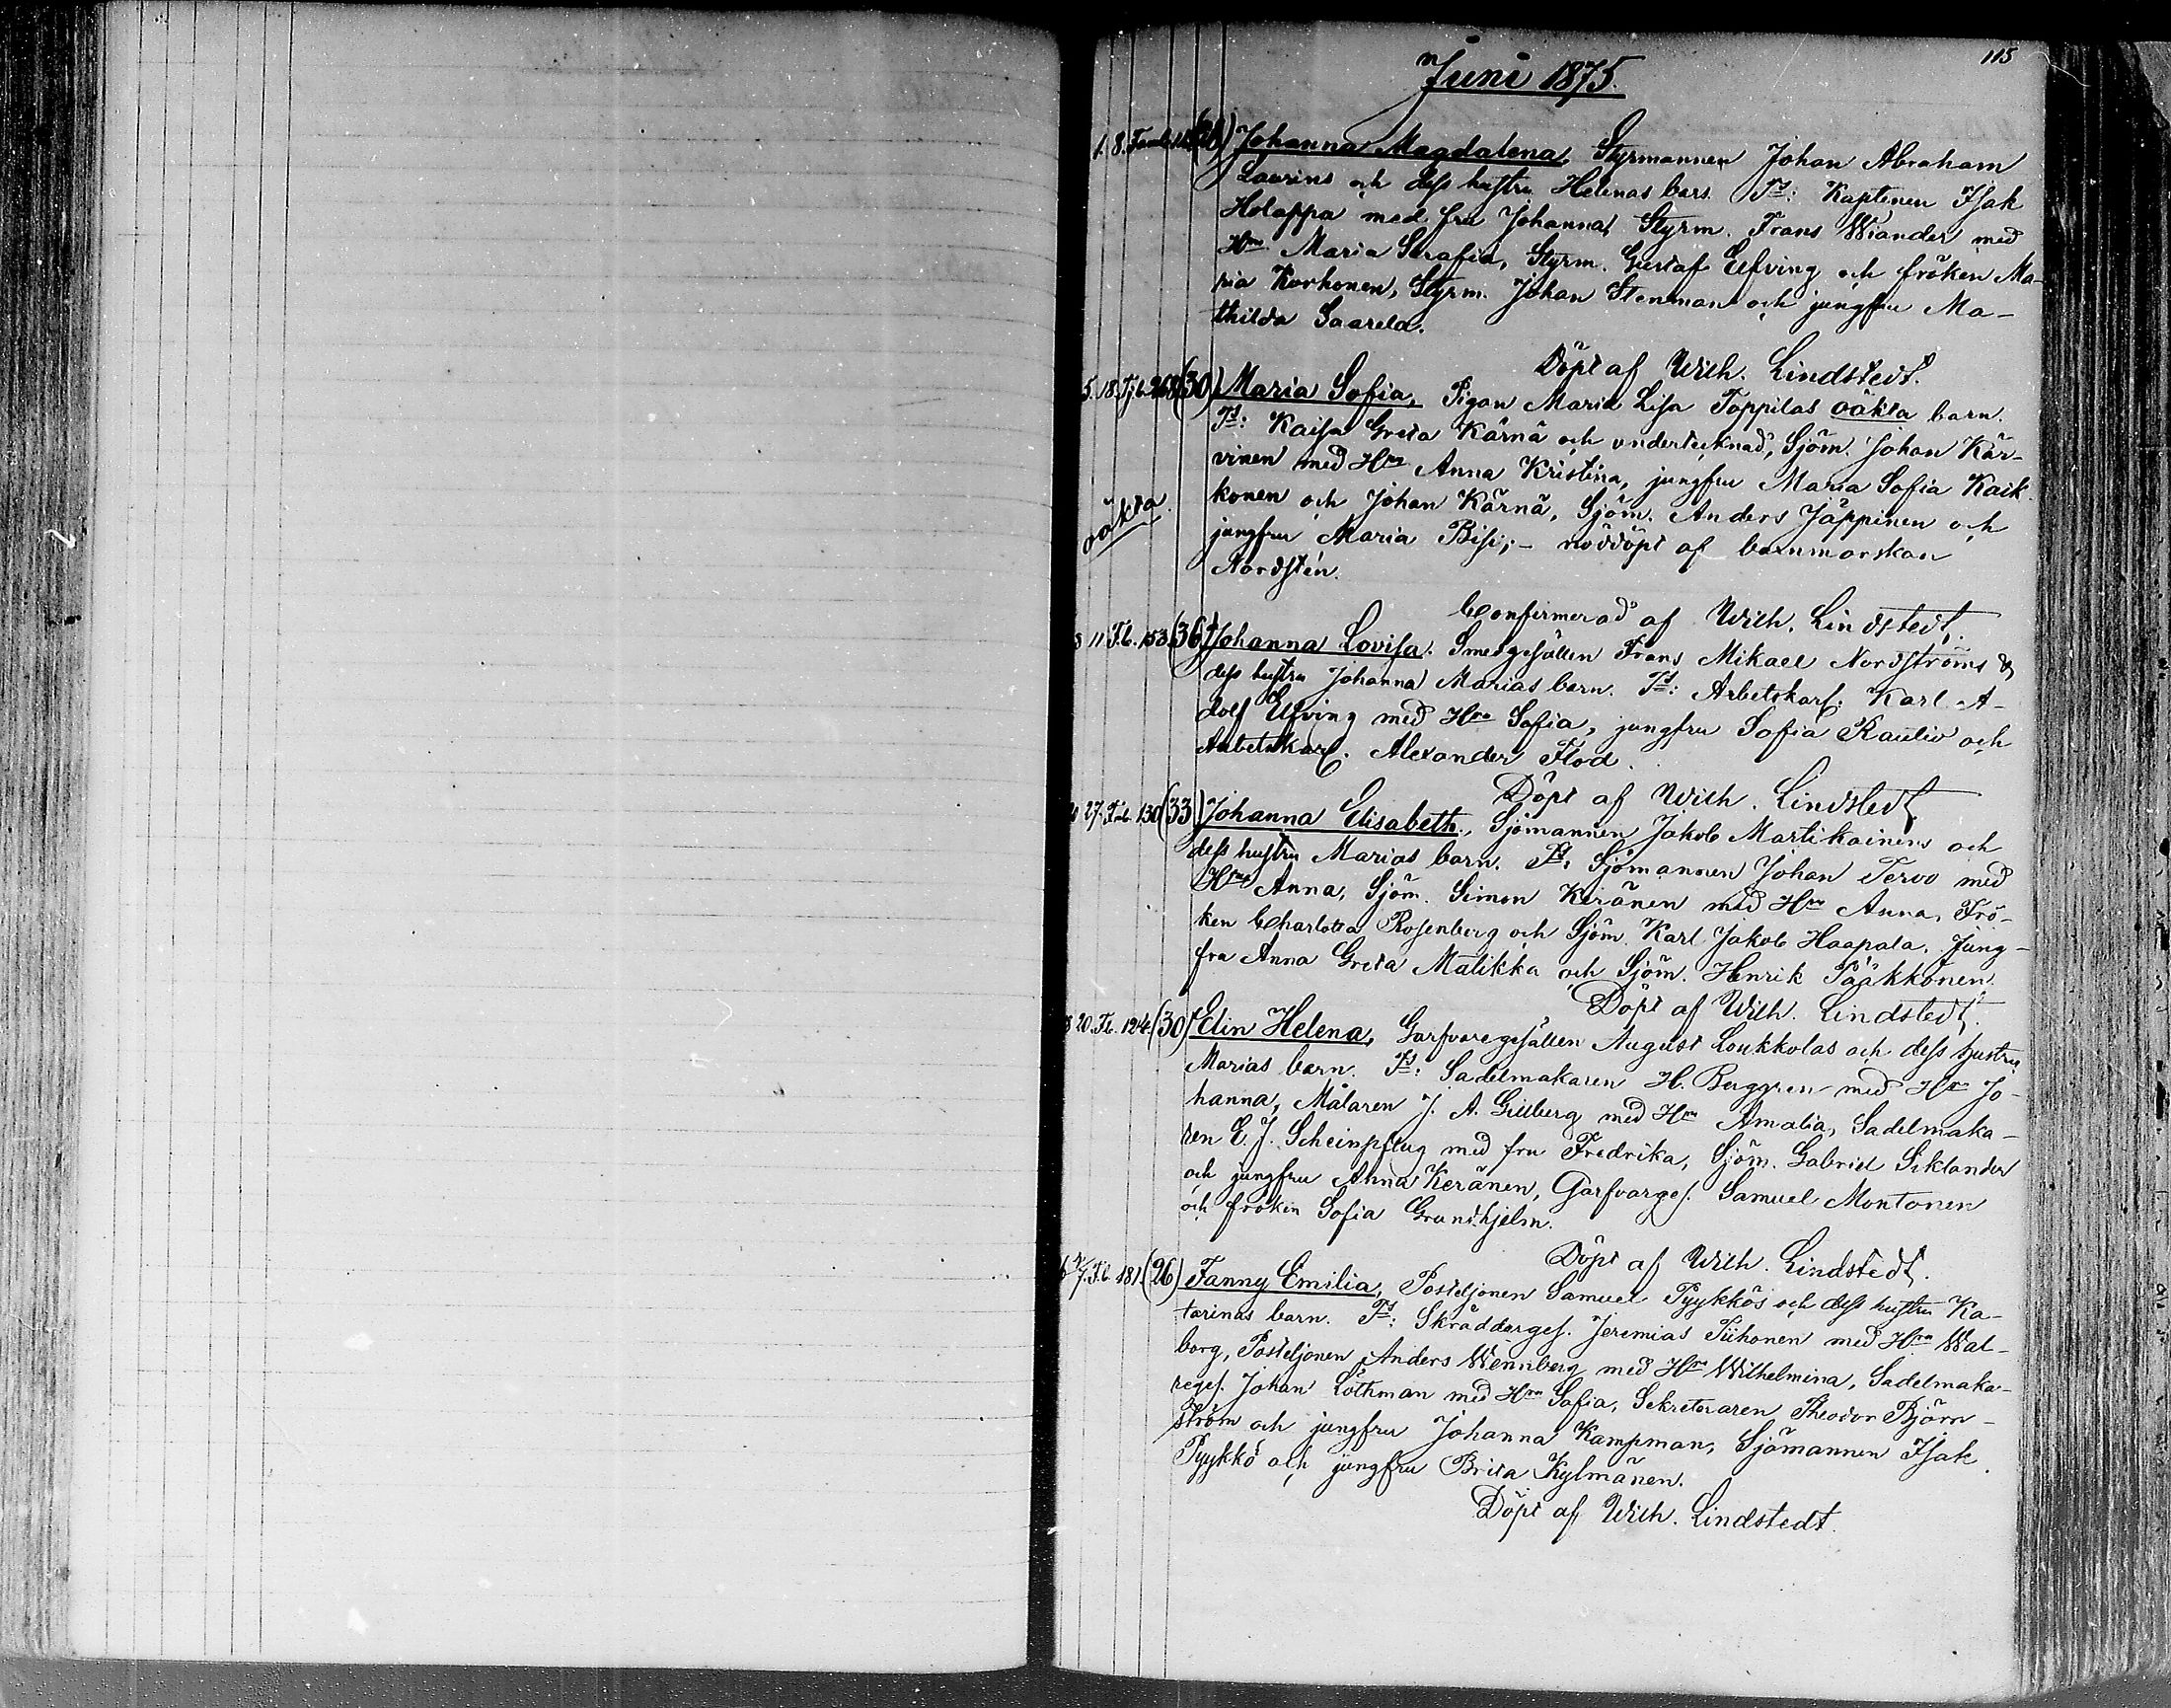 115
Juni 1875.
1. 8. (26) Johanna Magdalena, Styrmannen Johan Abraham
Laurins och dess hustru Helenas barn. Ts: Kaptenen Isak
Holappa med fru Johanna, Styrm. Frans Wiander med
Hru Maria Serafia, Styrm. Gustaf Elfving och fröken Ma-
ria Korhonen, Styrm. Johan Stenman och jungfru Ma-
thilda Saarela.
Döpt af Wilh. Lindstedt.
5. 18. Tjb. 268 (30) Maria Sofia, Pigan Maria Lisa Toppilas oäkta barn.
Ts: Kaisa Greta Kärnä och undertecknad, Sjöm. Johan Kär-
vinen med Hru Anna Kristina, jungfru Maria Sofia Kaik-
konen och Johan Kärnä, Sjöm. Anders Jäppinen och
oäkta.
jungfru Maria Bisi; - nöddöpt af barnmorskan
Nordstén.
Confirmerad af Wilh. Lindstedt.
8 11. Tb. 153. (36) Johanna Lovisa. Smedgesällen Frans Mikael Nordströms &
dess hustru Johanna Marias barn. Ts: Arbetskarl. Karl A-
dolf Elfving med Hru Sofia, jungfru Sofia Rautio och
Arbetskarl. Alexander Flod.
Döpt af Wilh. Lindstedt
27. Tb. 130 (33) Johanna Elisabeth., Sjömannen Jakob Martikainens och
dess hustru Marias barn. Ts. Sjömannen Johan Tervo med
Hru Anna, Sjöm. Simon Keränen med Hru Anna, Frö-
ken Charlotta Rosenberg och Sjöm. Karl Jakob Haapala, Jung-
fru Anna Greta Malikka och Sjöm. Henrik Pääkkönen.
Döpt af Wilh. Lindstedt.
20. Tb. 124. (30) Elin Helena, Garfvaregesällen August Loukkolas och dess hustru
Marias barn. Ts: Sadelmakaren H. Berggren med Hru Jo-
hanna, Målaren J. A. Gillberg med Hru Amalia, Sadelmaka-
ren E. J. Scheinpflug med fru Fredrika, Sjöm. Gabriel Siklander
och jungfru Anna Keränen, Garfvarges. Samuel Montonen
och fröken Sofia Grundhjelm.
Döpt af Wilh. Lindstedt.
Tb. 181. (26) Fanny Emilia, Postiljonen Samuel Pyykkös och dess hustru Ka-
tarinas barn. Ts: Skräddarges. Jeremias Tiihonen med Hru Wal-
borg, Postiljonen Anders Wennberg med Hru Wilhelmina, Sadelmaka-
reges. Johan Löthman med Hru Sofia, Sekreteraren Theodor Björn-
ström och jungfru Johanna Kampman, Sjömannen Isak
Pyykkö och jungfru Brita Kylmänen.
Döpt af Wilh. Lindstedt.